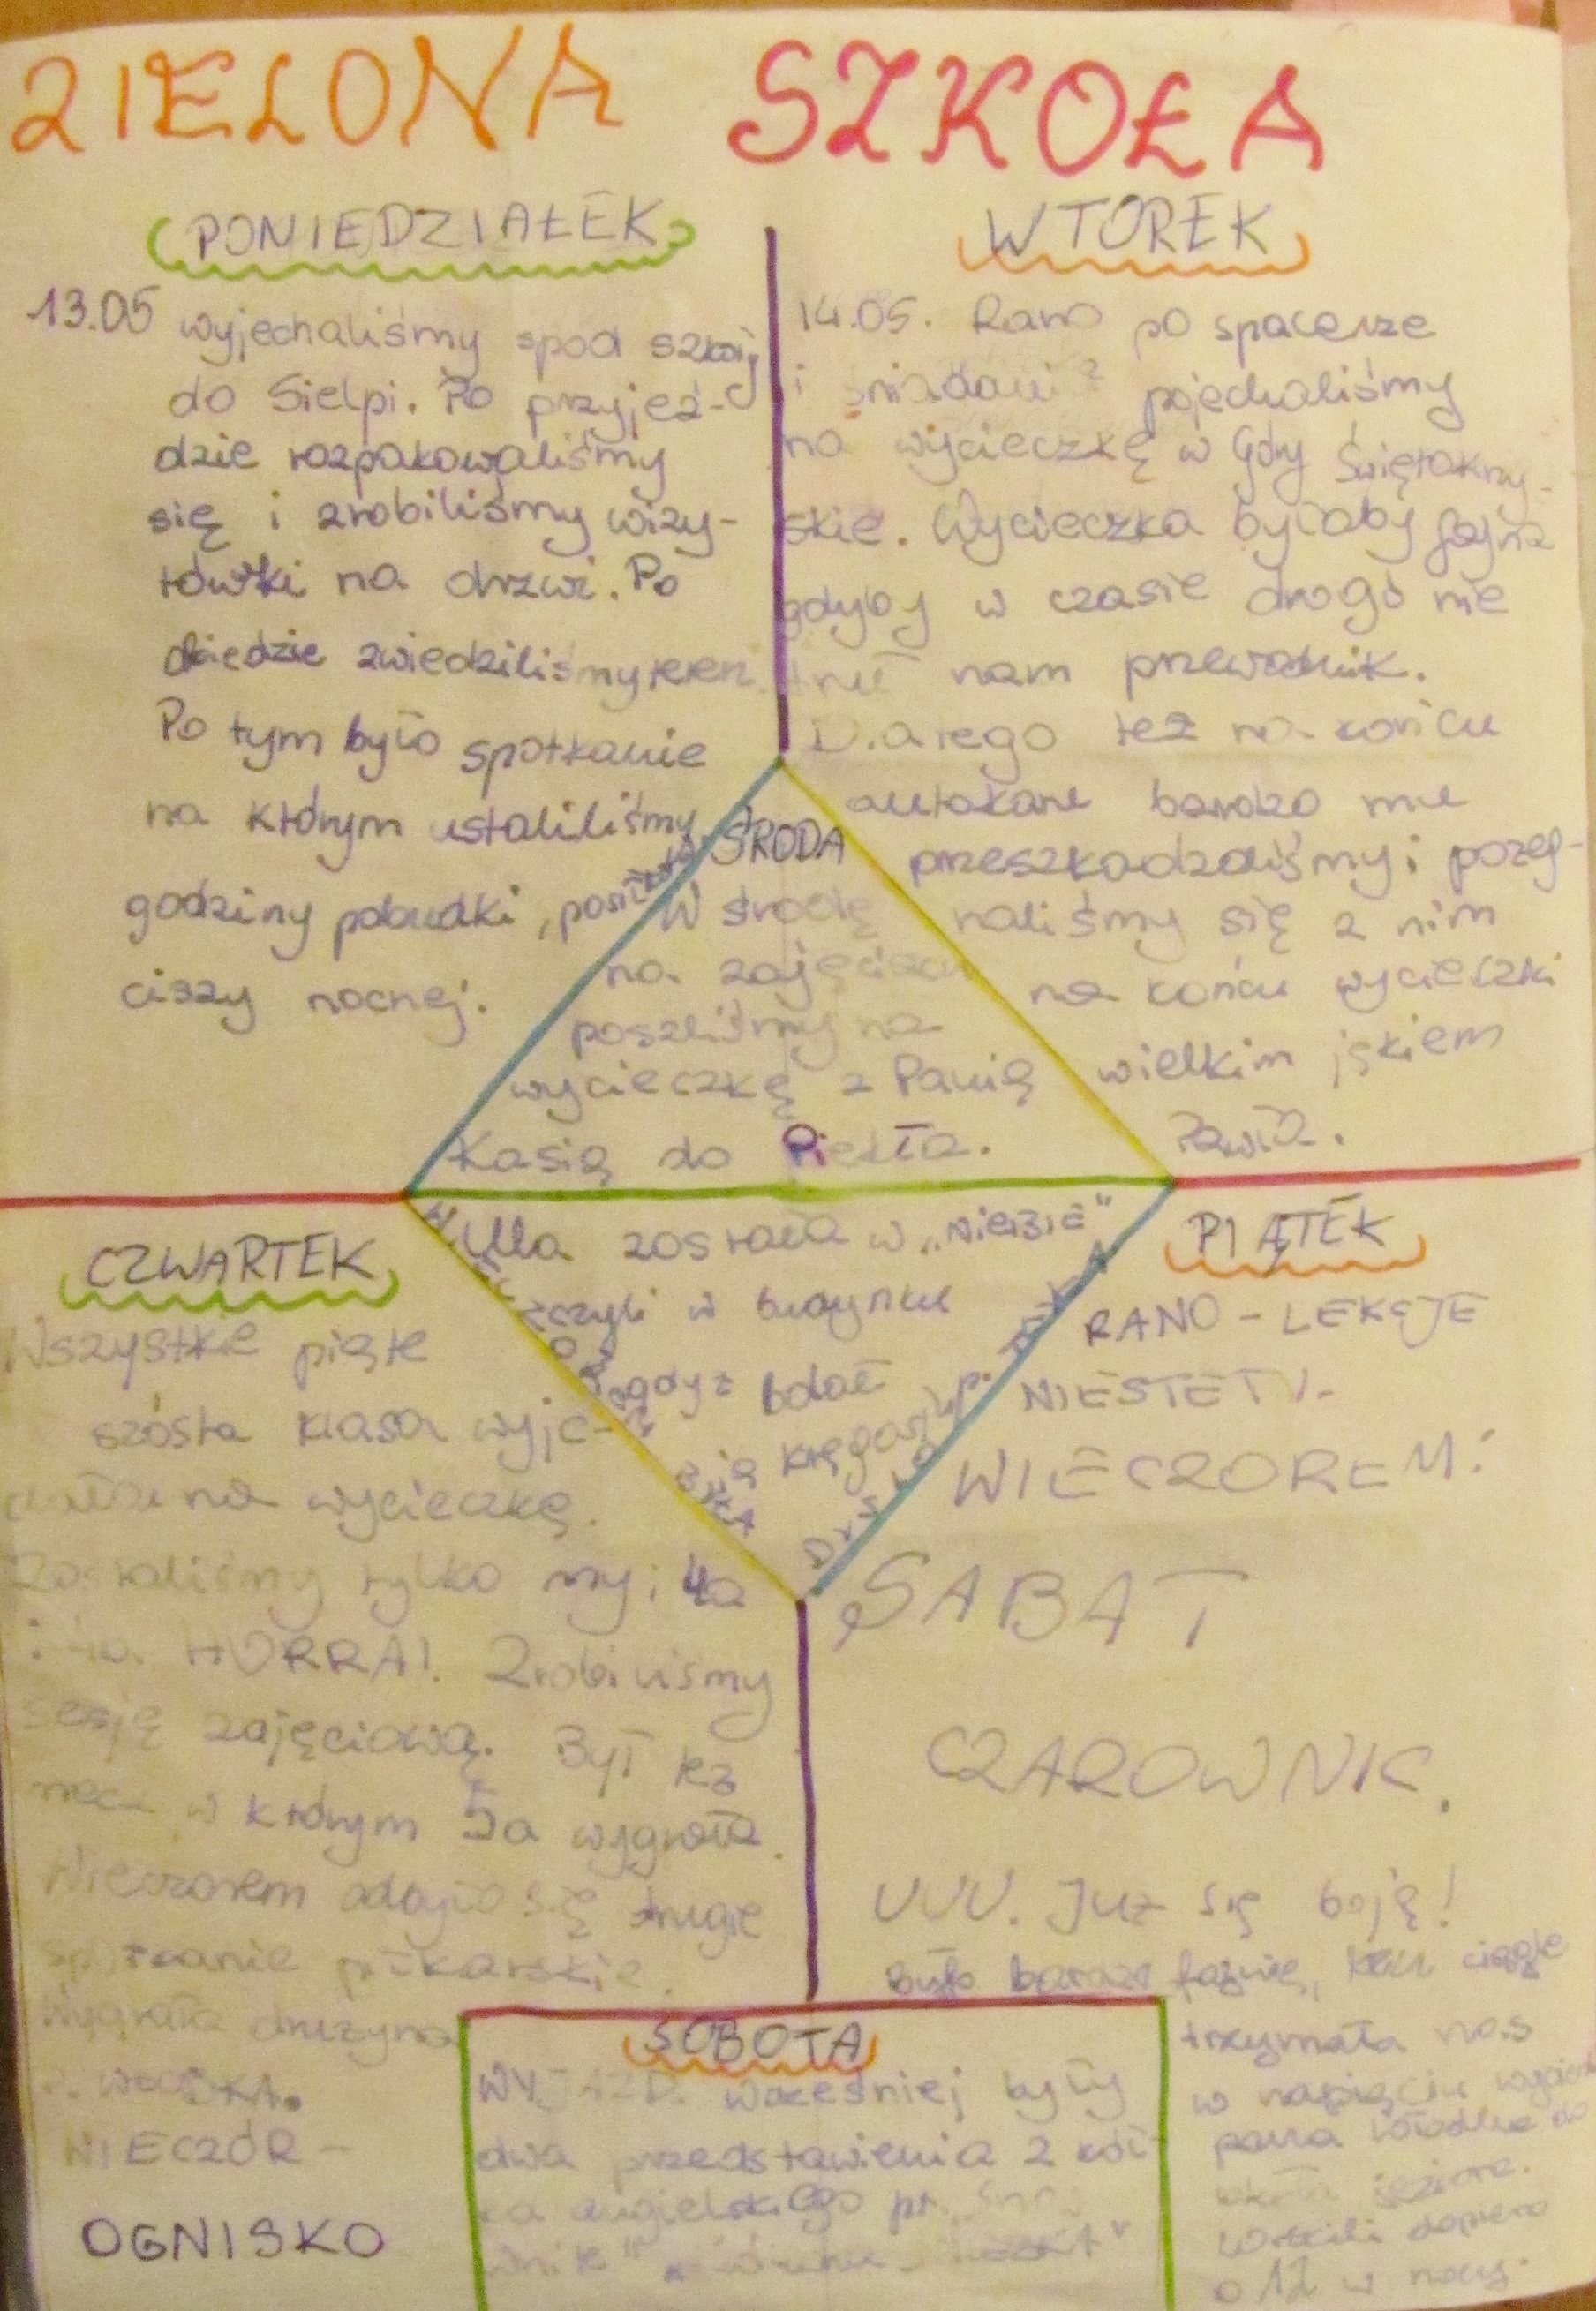 ZIELONA SZKOŁA
PONIEDZIAŁEK
13.05 wyjechaliśmy spod szkoły
do Sielpi. Po przyjeź-
dzie rozpakowaliśmy
się i zrobiliśmy wizy-
tówki na drzwi. Po
obiedzie zwiedziliśmy teren.
Po tym było spotkanie
na którym ustaliliśmy
godziny pobudki, posiłków
ciszy nocnej.
WTOREK
14.05. Rano po spacerze
i śniadaniu pojechaliśmy
na wycieczkę w Góry Świętokrzy-
skie. Wycieczka byłaby fajna
gdyby w czasie drogi nie
truł nam przewodnik.
Dlatego też na końcu
autokaru bardzo mu
przeszkadzaliśmy i pożeg-
naliśmy się z nim
na końcu wycieczki
wielkim jękiem
ŚRODA
W środę
na zajęciach
poszliśmy na
wycieczkę z Panią
Kasią do Piekła.
Ulla została w „Niebie"
czyli w budynku
gdyż bolał
ją kręgosłup.
WIECZOREM BYŁA
DYSKOTEKA
CZWARTEK
Wszystkie piąte
szósta klasa wyje-
chała na wycieczkę.
Zostaliśmy tylko my i 4a
HURRA!. Zrobiliśmy
sesję zajęciową. Był też
mecz w którym 5a wygrała.
Wieczorem odbyło się drugie
spotkanie piłkarskie.
Wygrała drużyna
WIECZÓR -
OGNISKO
PIĄTEK
RANO - LEKCJE
NIESTETY.
WIECZOREM:
SABAT
CZAROWNIC.
UUU. Już się boję!
Było bardzo fajnie, ciągle
trzymała nas
w napięciu
pana do
jeziora.
dopiero
o 12 w nocy.
SOBOTA
WYJAZD. Wcześniej były
dwa przedstawienia z kół-
ka angielskiego pt.